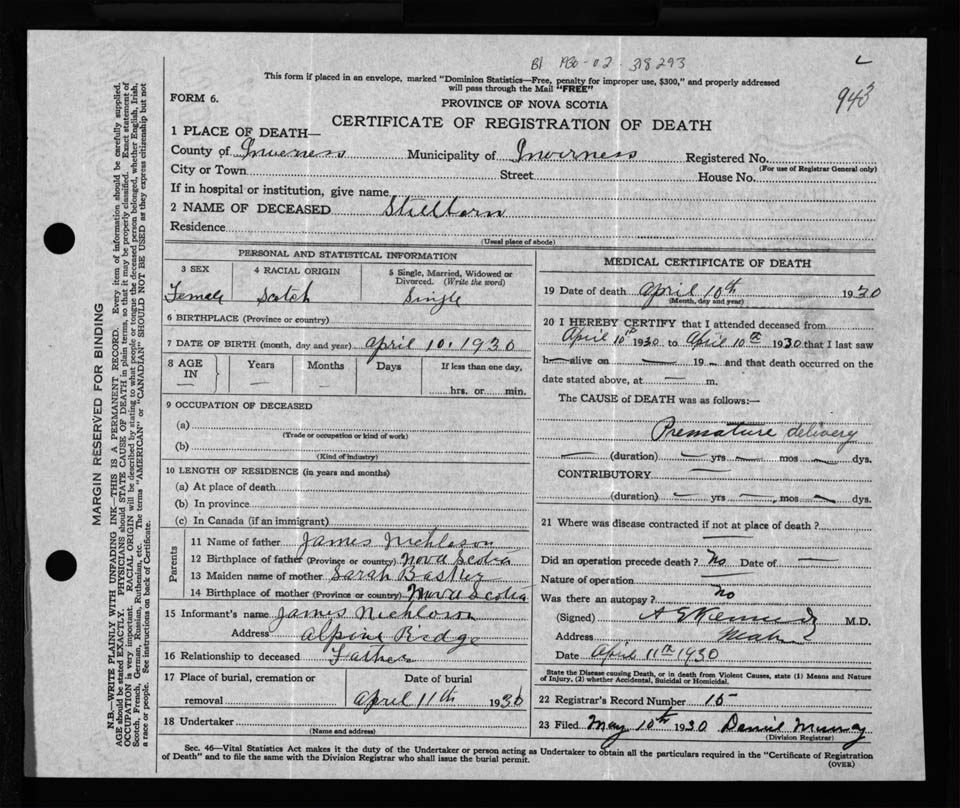 B1 1930-02-318293
943
This form if placed in an envelope, marked "Dominion Statistics—Free, penalty for improper use, $300," and properly addressed
will pass through the Mail "FREE"
FORM 6.
PROVINCE OF NOVA SCOTIA
CERTIFICATE OF REGISTRATION OF DEATH
1 PLACE OF DEATH—
County of Inverness Municipality of Inverness Registered No.
(For use of Registrar General only)
City or Town Street House No.
If in hospital or institution, give name
2 NAME OF DECEASED Stillborn
Residence
(Usual place of abode)
PERSONAL AND STATISTICAL INFORMATION
3 SEX 4 RACIAL ORIGIN 5 Single, Married, Widowed or
Divorced. (Write the word)
Female Scotch Single
6 BIRTHPLACE (Province or country)
7 DATE OF BIRTH (month, day and year) April 10, 1930
8 AGE Years Months Days If less than one day,
IN — — hrs. or min.
9 OCCUPATION OF DECEASED
(a)
(Trade or occupation or kind of work)
(b)
(Kind of industry)
10 LENGTH OF RESIDENCE (in years and months)
(a) At place of death
(b) In province
(c) In Canada (if an immigrant)
Parents
11 Name of father James Nichloson
12 Birthplace of father (Province or country) Nova Scotia
13 Maiden name of mother Sarah
14 Birthplace of mother (Province or country) Nova Scotia
15 Informant's name James Nichloson
Address Alpine Ridge
16 Relationship to deceased Father
17 Place of burial, cremation or Date of burial
removal April 11th 1930
18 Undertaker
(Name and address)
MEDICAL CERTIFICATE OF DEATH
19 Date of death April 10th 1930
(Month, day and year)
20 I HEREBY CERTIFY that I attended deceased from
April 10th 1930 to April 10th 1930 that I last saw
h— alive on — 19 — and that death occurred on the
date stated above, at — m.
The CAUSE of DEATH was as follows:—
Premature delivery
— (duration) — yrs — mos — dys.
CONTRIBUTORY —
(duration) — yrs — mos — dys.
21 Where was disease contracted if not at place of death?
—
Did an operation precede death? No Date of —
Nature of operation —
Was there an autopsy? no
(Signed) M.D.
Address
Date April 11th 1930
State the Disease causing Death, or in death from Violent Causes, state (1) Means and Nature
of Injury, (2) whether Accidental, Suicidal or Homicidal.
22 Registrar's Record Number 15
23 Filed May 10th 1930 Daniel Murray
(Division Registrar)
Sec. 46—Vital Statistics Act makes it the duty of the Undertaker or person acting as Undertaker to obtain all the particulars required in the "Certificate of Registration
of Death" and to file the same with the Division Registrar who shall issue the burial permit.
(OVER)
MARGIN RESERVED FOR BINDING
N.B.—WRITE PLAINLY WITH UNFADING INK—THIS IS A PERMANENT RECORD. Every item of information should be carefully supplied.
AGE should be stated EXACTLY. PHYSICIANS should STATE CAUSE OF DEATH in plain terms, so that it may be properly classified. Exact statement of
OCCUPATION is very important. RACIAL ORIGIN will be described by stating to what people or tongue the deceased person belonged, whether English, Irish,
Scotch, French, German, Russian, Ruthenian, etc. The terms "AMERICAN" or "CANADIAN" SHOULD NOT BE USED as they express citizenship but not
a race or people. See instructions on back of Certificate.